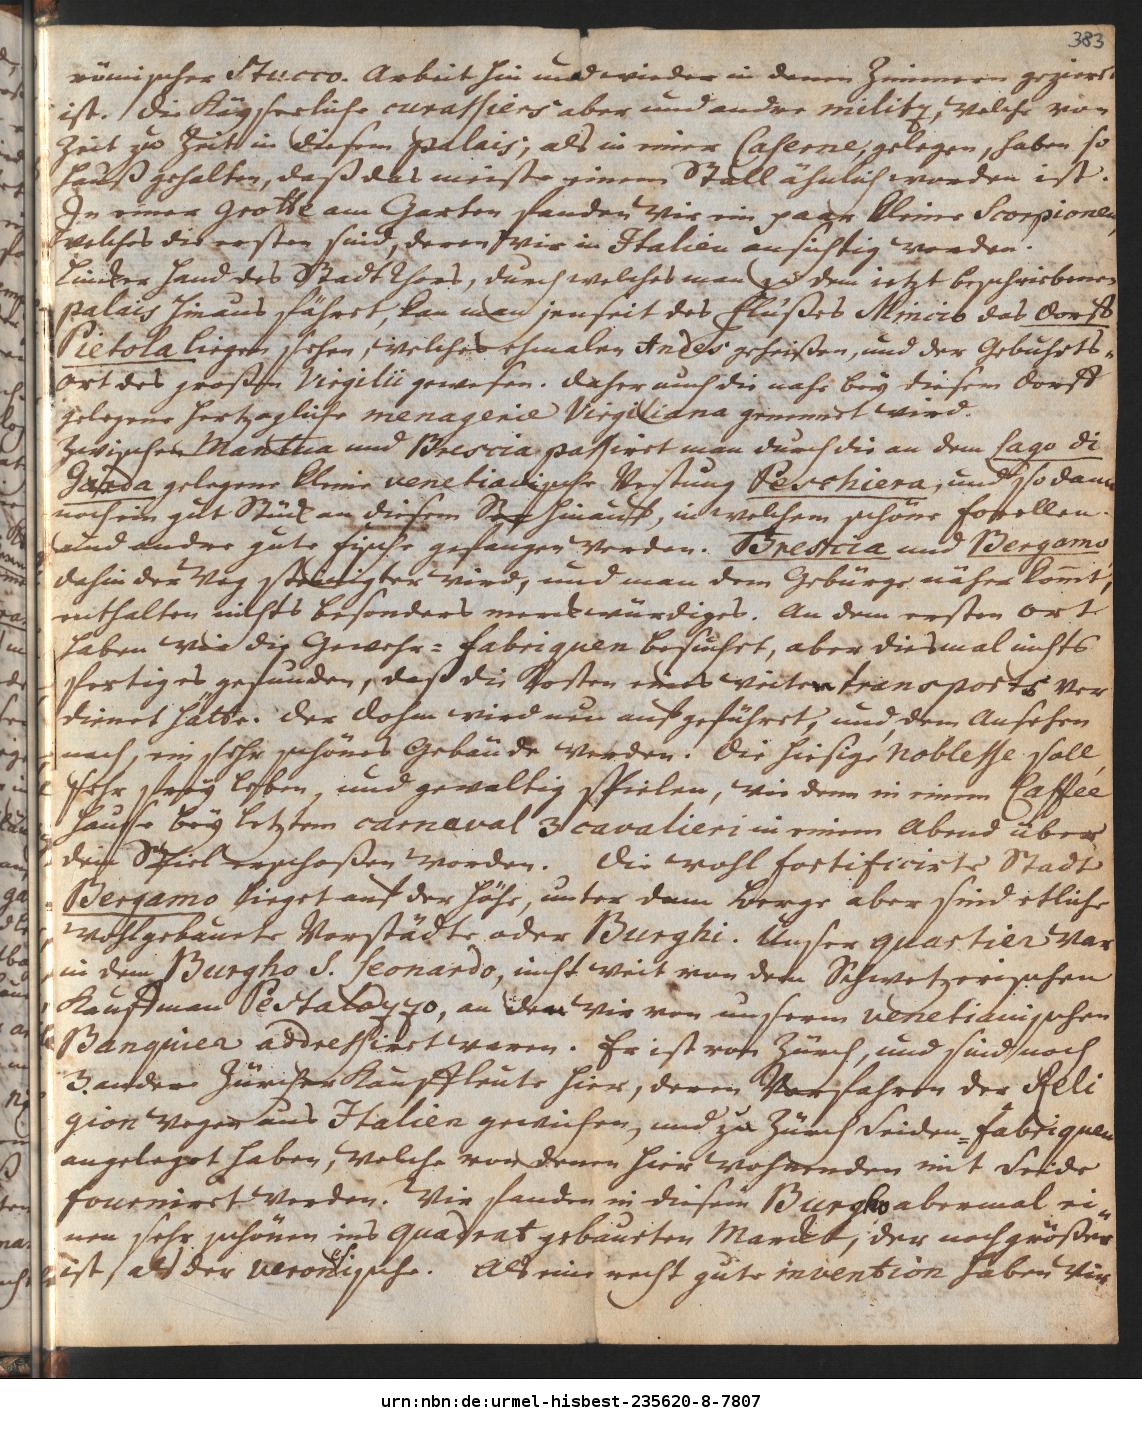 383
römischer Stucco-Arbeit hin und wieder in denen Zimmern gezieret
ist. Die Käyserliche curassiers aber und andre militz, welche von
Zeit zu Zeit in diesem palais, als in einer Caserne, gelegen, haben so
Hauß gehalten, daß das meiste einem Stall ähnlich worden ist.
In einer Grotte am Garten fanden wir ein paar kleine Scorpionen,
welches die ersten sind, deren wir in Italien ansichtig worden.
Lincker Hand des Stadt Thors, durch welches man zu dem ietzt beschriebenen
palais hinaus fähret, kan man jenseit des Flußes Mincio das Dorff
Pietola liegen sehen, welches ehmalen Andes geheißen, und der Gebuhrts-
ort des großen Virgilii gewesen. Daher auch die nahe bey diesem Dorff
gelegene Hertzogliche menagerie Virgiliana genennet wird.
Zwischen Mantua und Brescia passiret man durch die an dem Lago di
Garda gelegene kleine venetianische Vestung Peschiera, und so dann
noch ein gut Stück an diesem See hinauf, in welchem schöne Forellen
und andre gute Fische gefangen werden. Brescia und Bergamo,
dahin der Weg steinigter wird, und man dem Gebürge näher komt,
enthalten nichts besonders merckwürdiges. An dem ersten Ort
haben wir die Gewehr=fabriquen besuchet, aber diesmal nichts
fertiges gefunden, daß die Kosten eines weiten transports ver
dienet hätte. Der Dohm wird neu aufgeführet, und dem Ansehen
nach, ein sehr schönes Gebäude werden. Die hiesige noblesse soll
sehr frey leben, und gewaltig spielen, wie denn in einem Caffee
Hause bey letztem carneval 3 cavalieri in einem Abend über
dem Spiel erschoßen worden. Die wohl fortificirte Stadt
Bergamo lieget auf der Höhe, unter dem Berge aber sind etliche
wohlgebauete Vorstädte oder Burghi. Unser quartier war
in dem Burgho S. Leonardo, nicht weit von dem Schweitzerischen
Kauffman Pestalozzo, an den wir von unserm venetianischen
Banquier addressiret waren. Er ist von Zürch, und sind noch
3 andere Zürcher Kauffleute hier, deren Vorfahren der Reli
gion wegen aus Italien gewichen, und zu Zürch Seiden=fabriquen
angeleget haben, welche von denen hier wohnenden mit Seide
fourniret werden. Wir fanden in diesem Burgho abermal ei-
nen sehr schönen ins quadrat gebaueten Marckt, der noch größer
ist, als der veronesische. Als eine recht gute invention haben wir
urn:nbn:de:urmel-hisbest-235620-8-7807